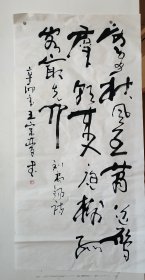 何处秋风至萧萧送雁
群朝来入庭树孤
客最先闻 刘禹锡诗
辛卯年王书